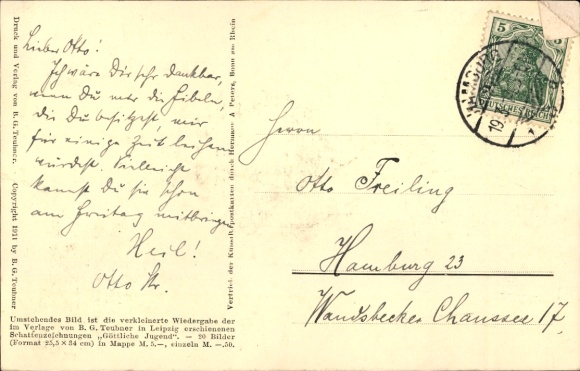 Lieber Otto!
Ich wäre Dir sehr dankbar,
wenn Du mir die Fibeln,
die Du besitzest, mir
für einige Zeit leihen
würdest. Vielleicht
kannst Du sie schon
am Freitag mitbringen.
Heil!
Otto Str.
Umstehendes Bild ist die verkleinerte Wiedergabe der
im Verlage von B. G. Teubner in Leipzig erschienenen
Schattenzeichnungen „Göttliche Jugend“. — 20 Bilder
(Format 25,5×34 cm) in Mappe M. 5.—, einzeln M. —.50.
Druck und Verlag von B. G. Teubner. Copyright 1911 by B. G. Teubner
Vertrieb der Künstlerpostkarten durch Hermann A Peters, Bonn am Rhein
5 5
DEUTSCHES REICH
HAMBURG
1
Herrn
Otto Freiling
Hamburg 23
Wandsbecker Chaussee 17.